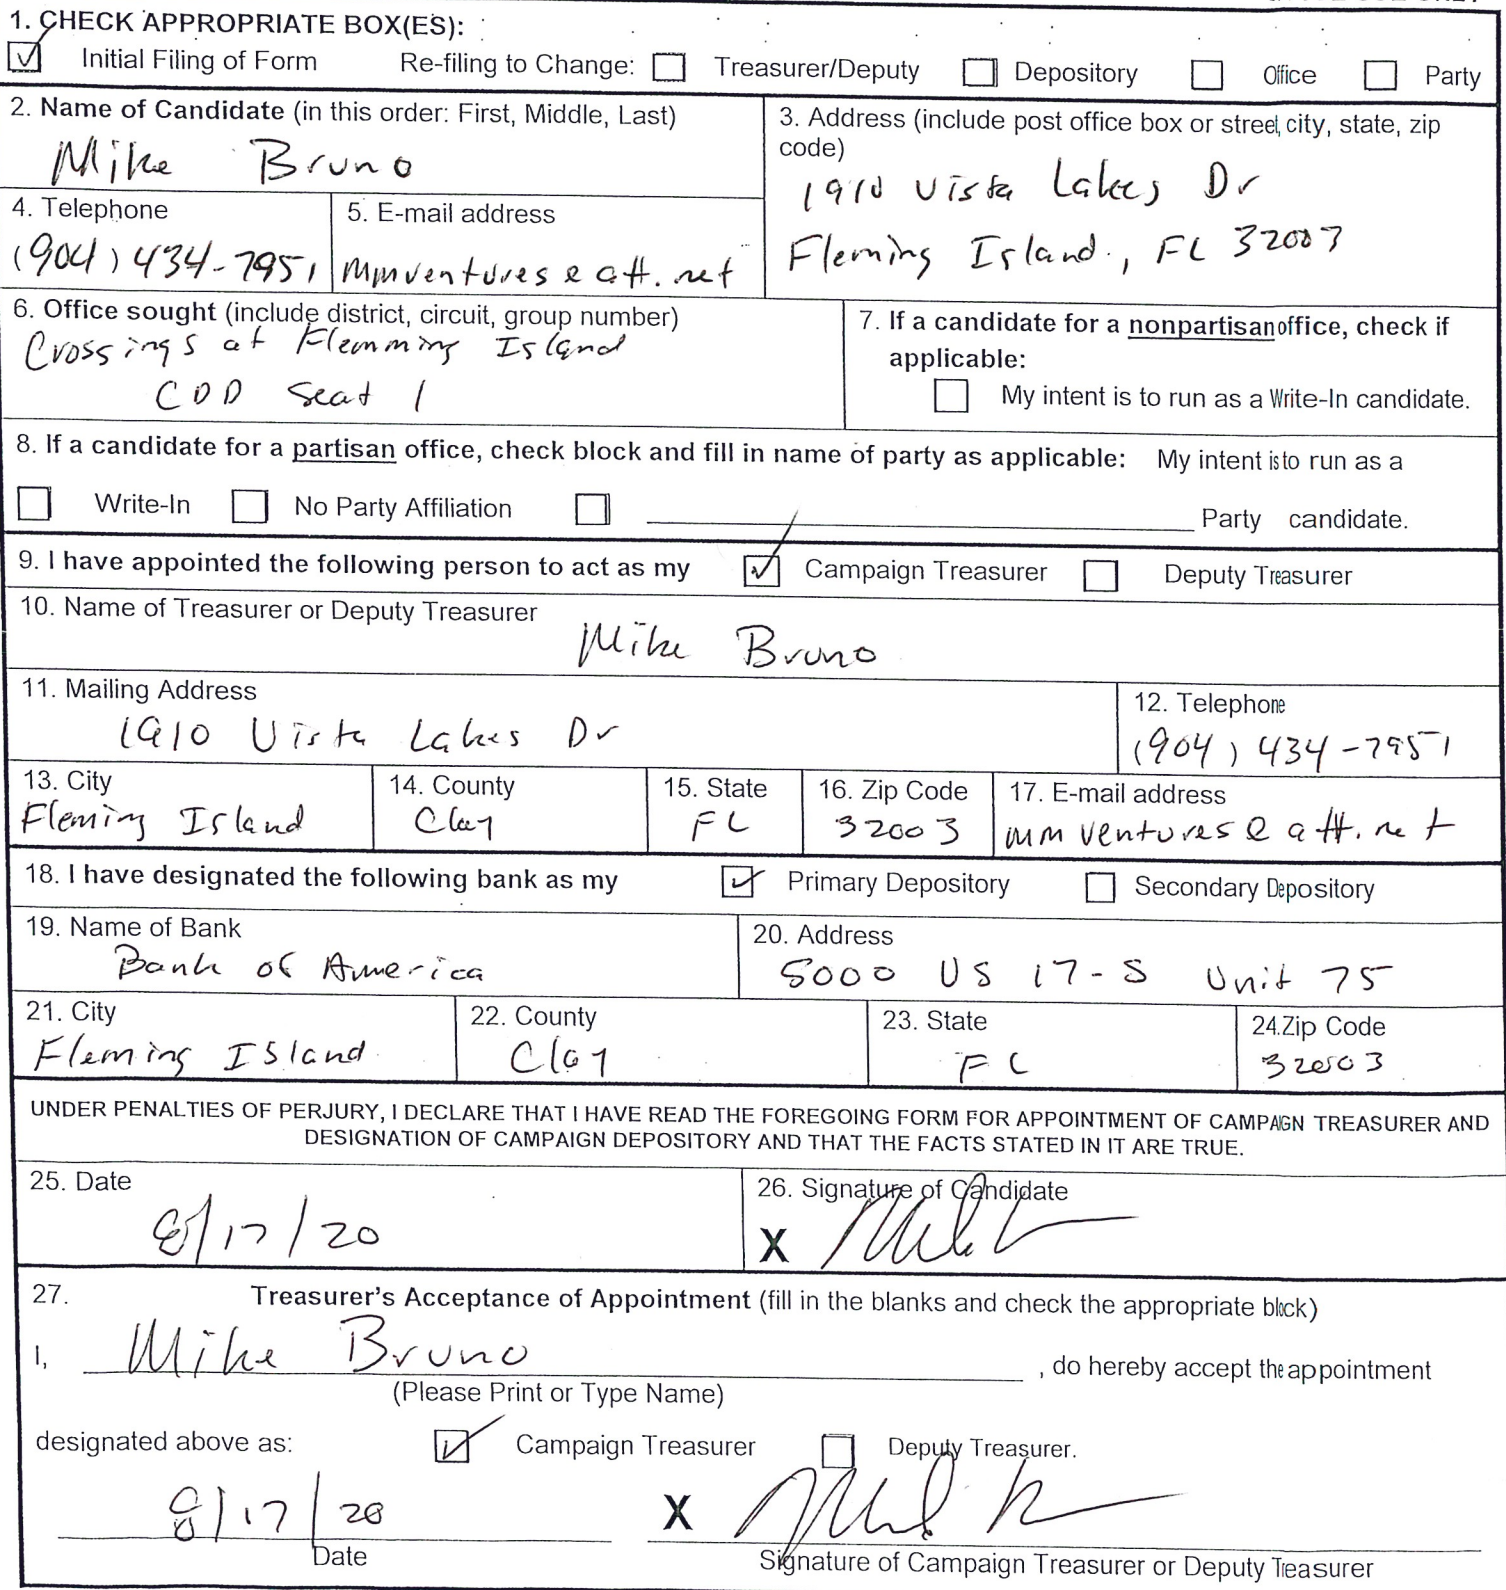 1. CHECK APPROPRIATE BOX(ES):
Initial Filing of Form Re-filing to Change: Treasurer/Deputy Depository Office Party
2. Name of Candidate (in this order: First, Middle, Last)
Mike Bruno
3. Address (include post office box or street, city, state, zip
code)
1910 Vista Lakes Dr
Fleming Island, FL 32003
4. Telephone
(904) 434-7951
5. E-mail address
mmventures@att.net
6. Office sought (include district, circuit, group number)
Crossings at Flemming Island
CDD Seat 1
7. If a candidate for a nonpartisan office, check if
applicable:
My intent is to run as a Write-In candidate.
8. If a candidate for a partisan office, check block and fill in name of party as applicable: My intent is to run as a
Write-In No Party Affiliation Party candidate.
9. I have appointed the following person to act as my Campaign Treasurer Deputy Treasurer
10. Name of Treasurer or Deputy Treasurer
Mike Bruno
11. Mailing Address
1910 Vista Lakes Dr
12. Telephone
(904) 434-7951
13. City
Fleming Island
14. County
Clay
15. State
FL
16. Zip Code
32003
17. E-mail address
mmventures@att.net
18. I have designated the following bank as my Primary Depository Secondary Depository
19. Name of Bank
Bank of America
20. Address
5000 US 17-S Unit 75
21. City
Fleming Island
22. County
Clay
23. State
FL
24.Zip Code
32003
UNDER PENALTIES OF PERJURY, I DECLARE THAT I HAVE READ THE FOREGOING FORM FOR APPOINTMENT OF CAMPAIGN TREASURER AND
DESIGNATION OF CAMPAIGN DEPOSITORY AND THAT THE FACTS STATED IN IT ARE TRUE.
25. Date
8/17/20
26. Signature of Candidate
X
27. Treasurer's Acceptance of Appointment (fill in the blanks and check the appropriate block)
I, Mike Bruno , do hereby accept the appointment
(Please Print or Type Name)
designated above as: Campaign Treasurer Deputy Treasurer.
8/17/20 X
Date Signature of Campaign Treasurer or Deputy Treasurer